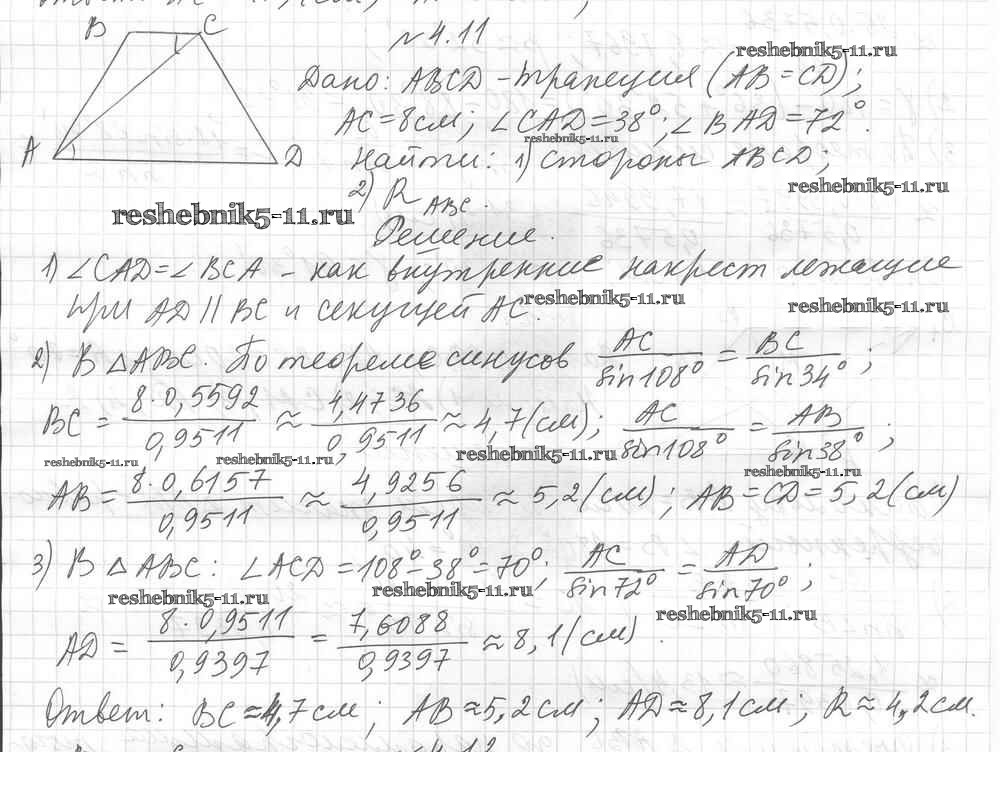 №4.11
B C
reshebnik5-11.ru
Дано: ABCD – трапеция (AB = CD);
AC = 8 см; ∠CAD = 38°; ∠BAD = 72°.
reshebnik5-11.ru
A D
Найти: 1) стороны ABCD;
reshebnik5-11.ru
2) R ABC.
reshebnik5-11.ru
Решение.
1) ∠CAD = ∠BCA – как внутренние накрест лежащие
при AD || BC и секущей AC.
reshebnik5-11.ru
reshebnik5-11.ru
2) В △ABC. По теореме синусов AC/sin108° = BC/sin34°;
BC = 8·0,5592/0,9511 ≈ 4,4736/0,9511 ≈ 4,7 (см); AC/sin108° = AB/sin38°;
reshebnik5-11.ru reshebnik5-11.ru reshebnik5-11.ru reshebnik5-11.ru
AB = 8·0,6157/0,9511 ≈ 4,9256/0,9511 ≈ 5,2 (см); AB = CD = 5,2 (см)
3) В △ABC: ∠ACD = 108° – 38° = 70°; AC/sin72° = AD/sin70°;
reshebnik5-11.ru reshebnik5-11.ru reshebnik5-11.ru
AD = 8·0,9511/0,9397 = 7,6088/0,9397 ≈ 8,1 (см).
Ответ: BC ≈ 4,7 см; AB ≈ 5,2 см; AD ≈ 8,1 см; R ≈ 4,2 см.